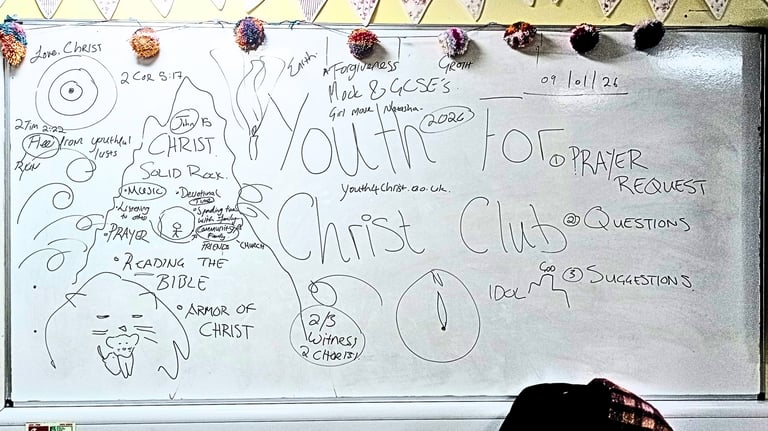 Love. CHRIST
2 COR 5:17
2 Tim 2:22
Flee from youthful
lusts
RUN
John 15
CHRIST
SOLID ROCK.
• MUSIC
• Listening
to
• PRAYER
• Devotional
Time
• Spending time
with Family
Community
Family
FRIENDS
CHURCH
• READING THE
BIBLE
• ARMOR OF
CHRIST
Faith.
Forgiveness
Mock & GCSE's.
Girl move / Natasha.
GROTH
09/01/26
2026
Youth For
youth4christ.co.uk.
Christ Club
① PRAYER
REQUEST
② QUESTIONS
③ SUGGESTIONS.
GOD
IDOL
N
2/3
Witness
2 CHRIST.